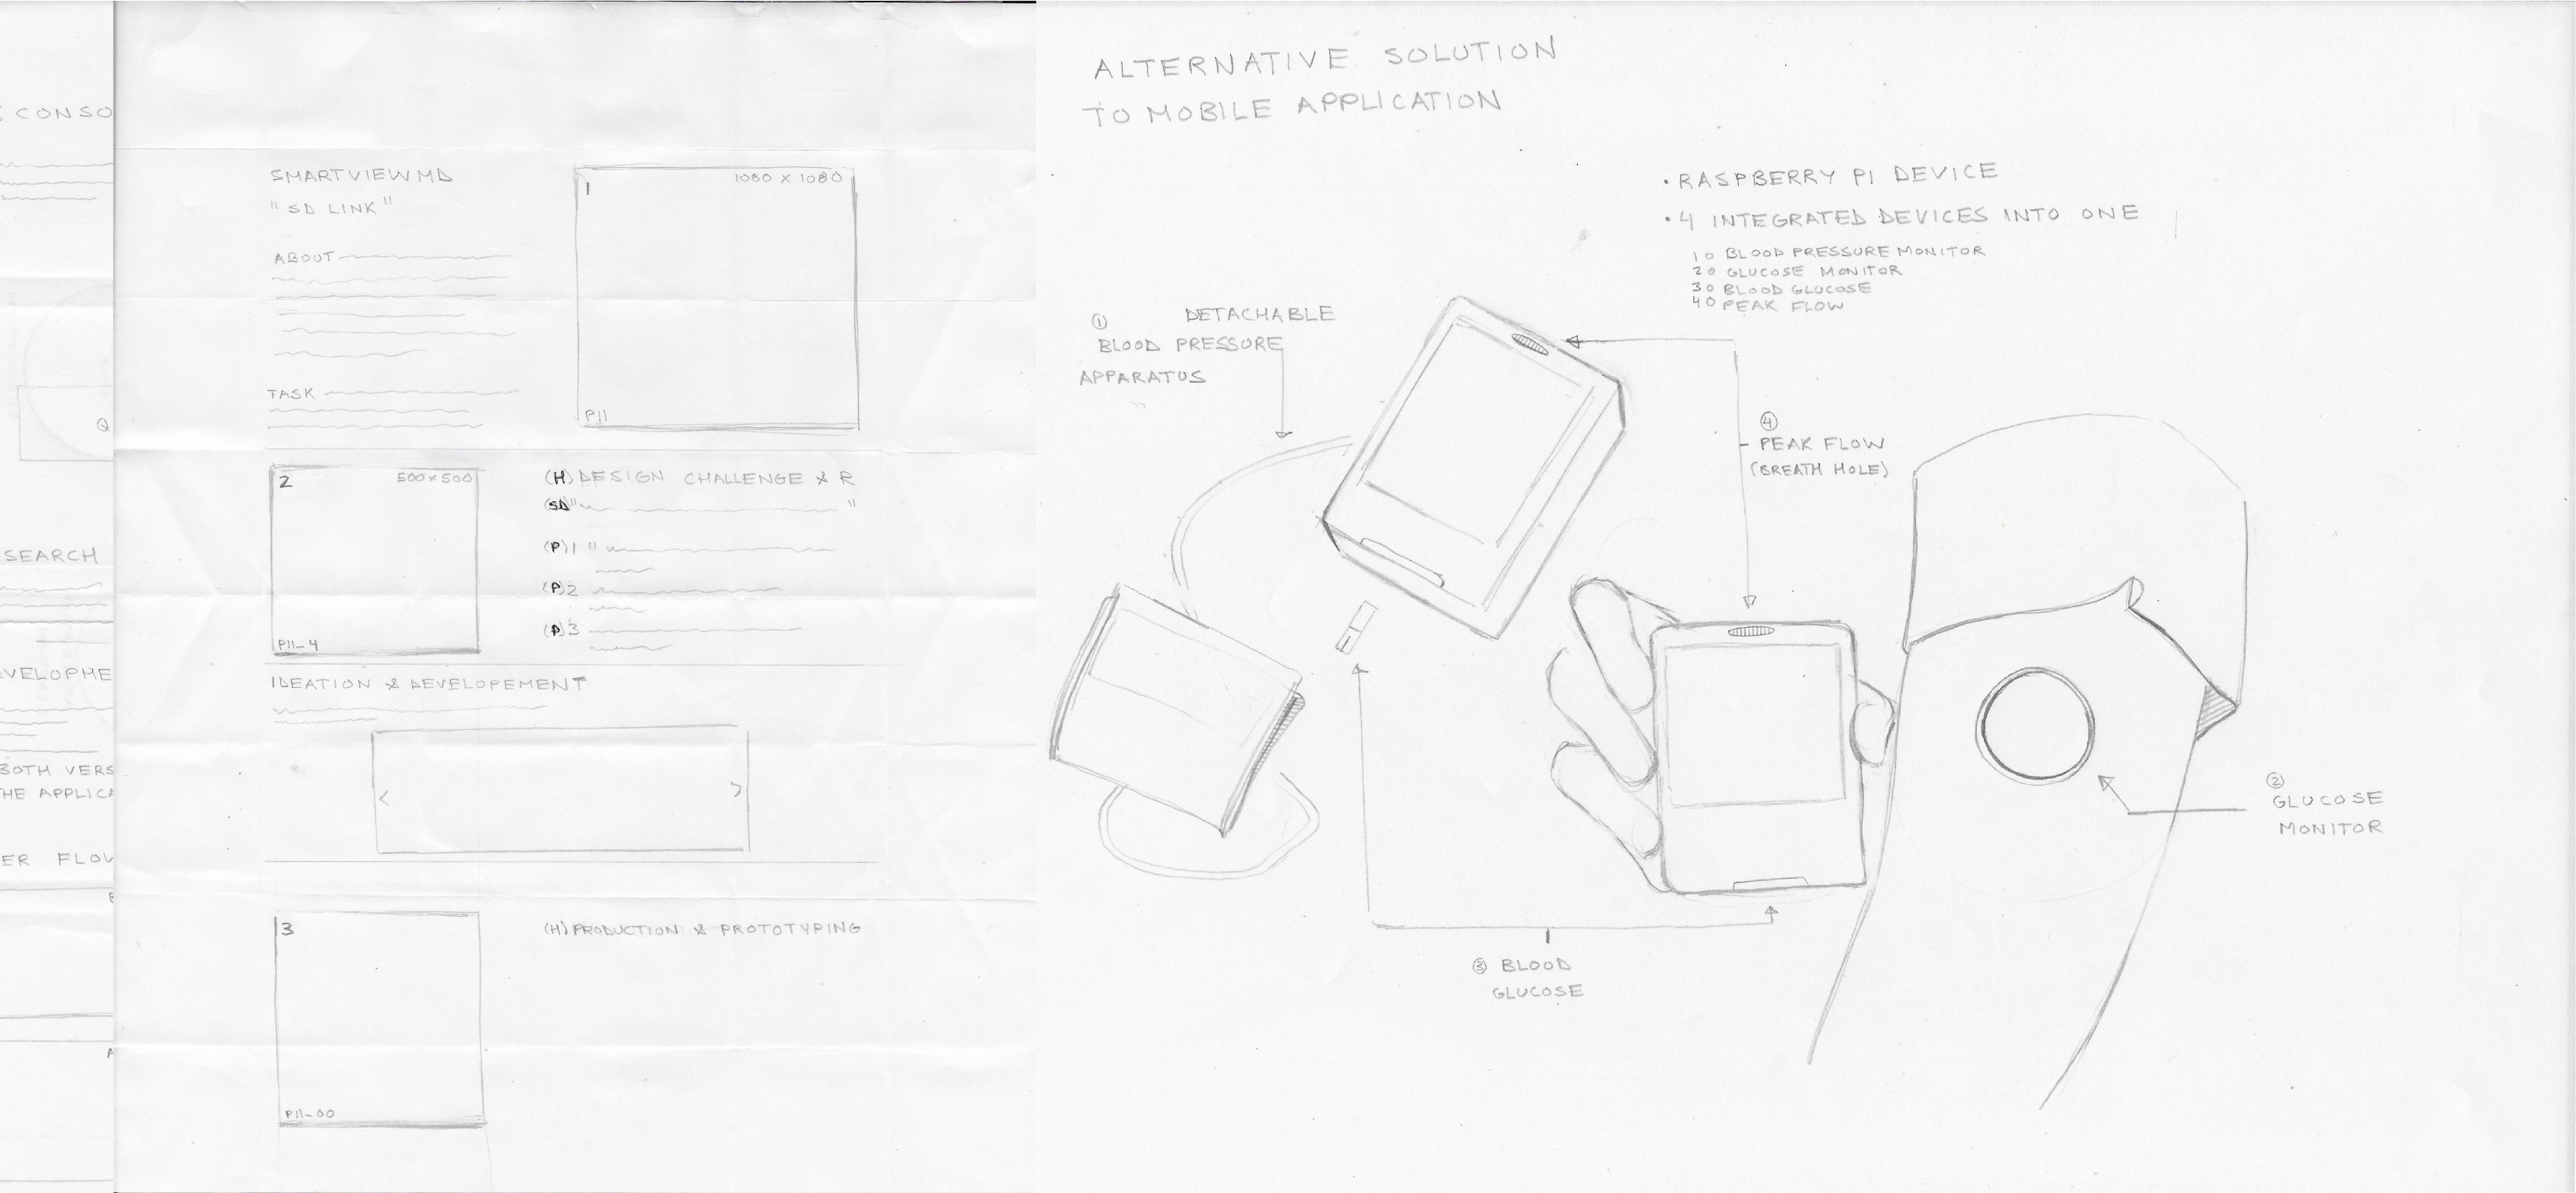 CONSO
Q
SEARCH
VELOPME
BOTH VERS
HE APPLICA
ER FLOW
SMARTVIEWMD
"SD LINK"
ABOUT
TASK
1
1080 X 1080
P11
2
500 x 500
P11_4
(H) DESIGN CHALLENGE & R
(SD) " "
(P) 1 "
(P) 2
(P) 3
IDEATION & DEVELOPEMENT
< >
3
P11_00
(H) PRODUCTION & PROTOTYPING
ALTERNATIVE SOLUTION
TO MOBILE APPLICATION
• RASPBERRY PI DEVICE
• 4 INTEGRATED DEVICES INTO ONE
1o BLOOD PRESSURE MONITOR
2o GLUCOSE MONITOR
3o BLOOD GLUCOSE
4o PEAK FLOW
① DETACHABLE
BLOOD PRESSURE
APPARATUS
④
PEAK FLOW
(BREATH HOLE)
②
GLUCOSE
MONITOR
③ BLOOD
GLUCOSE